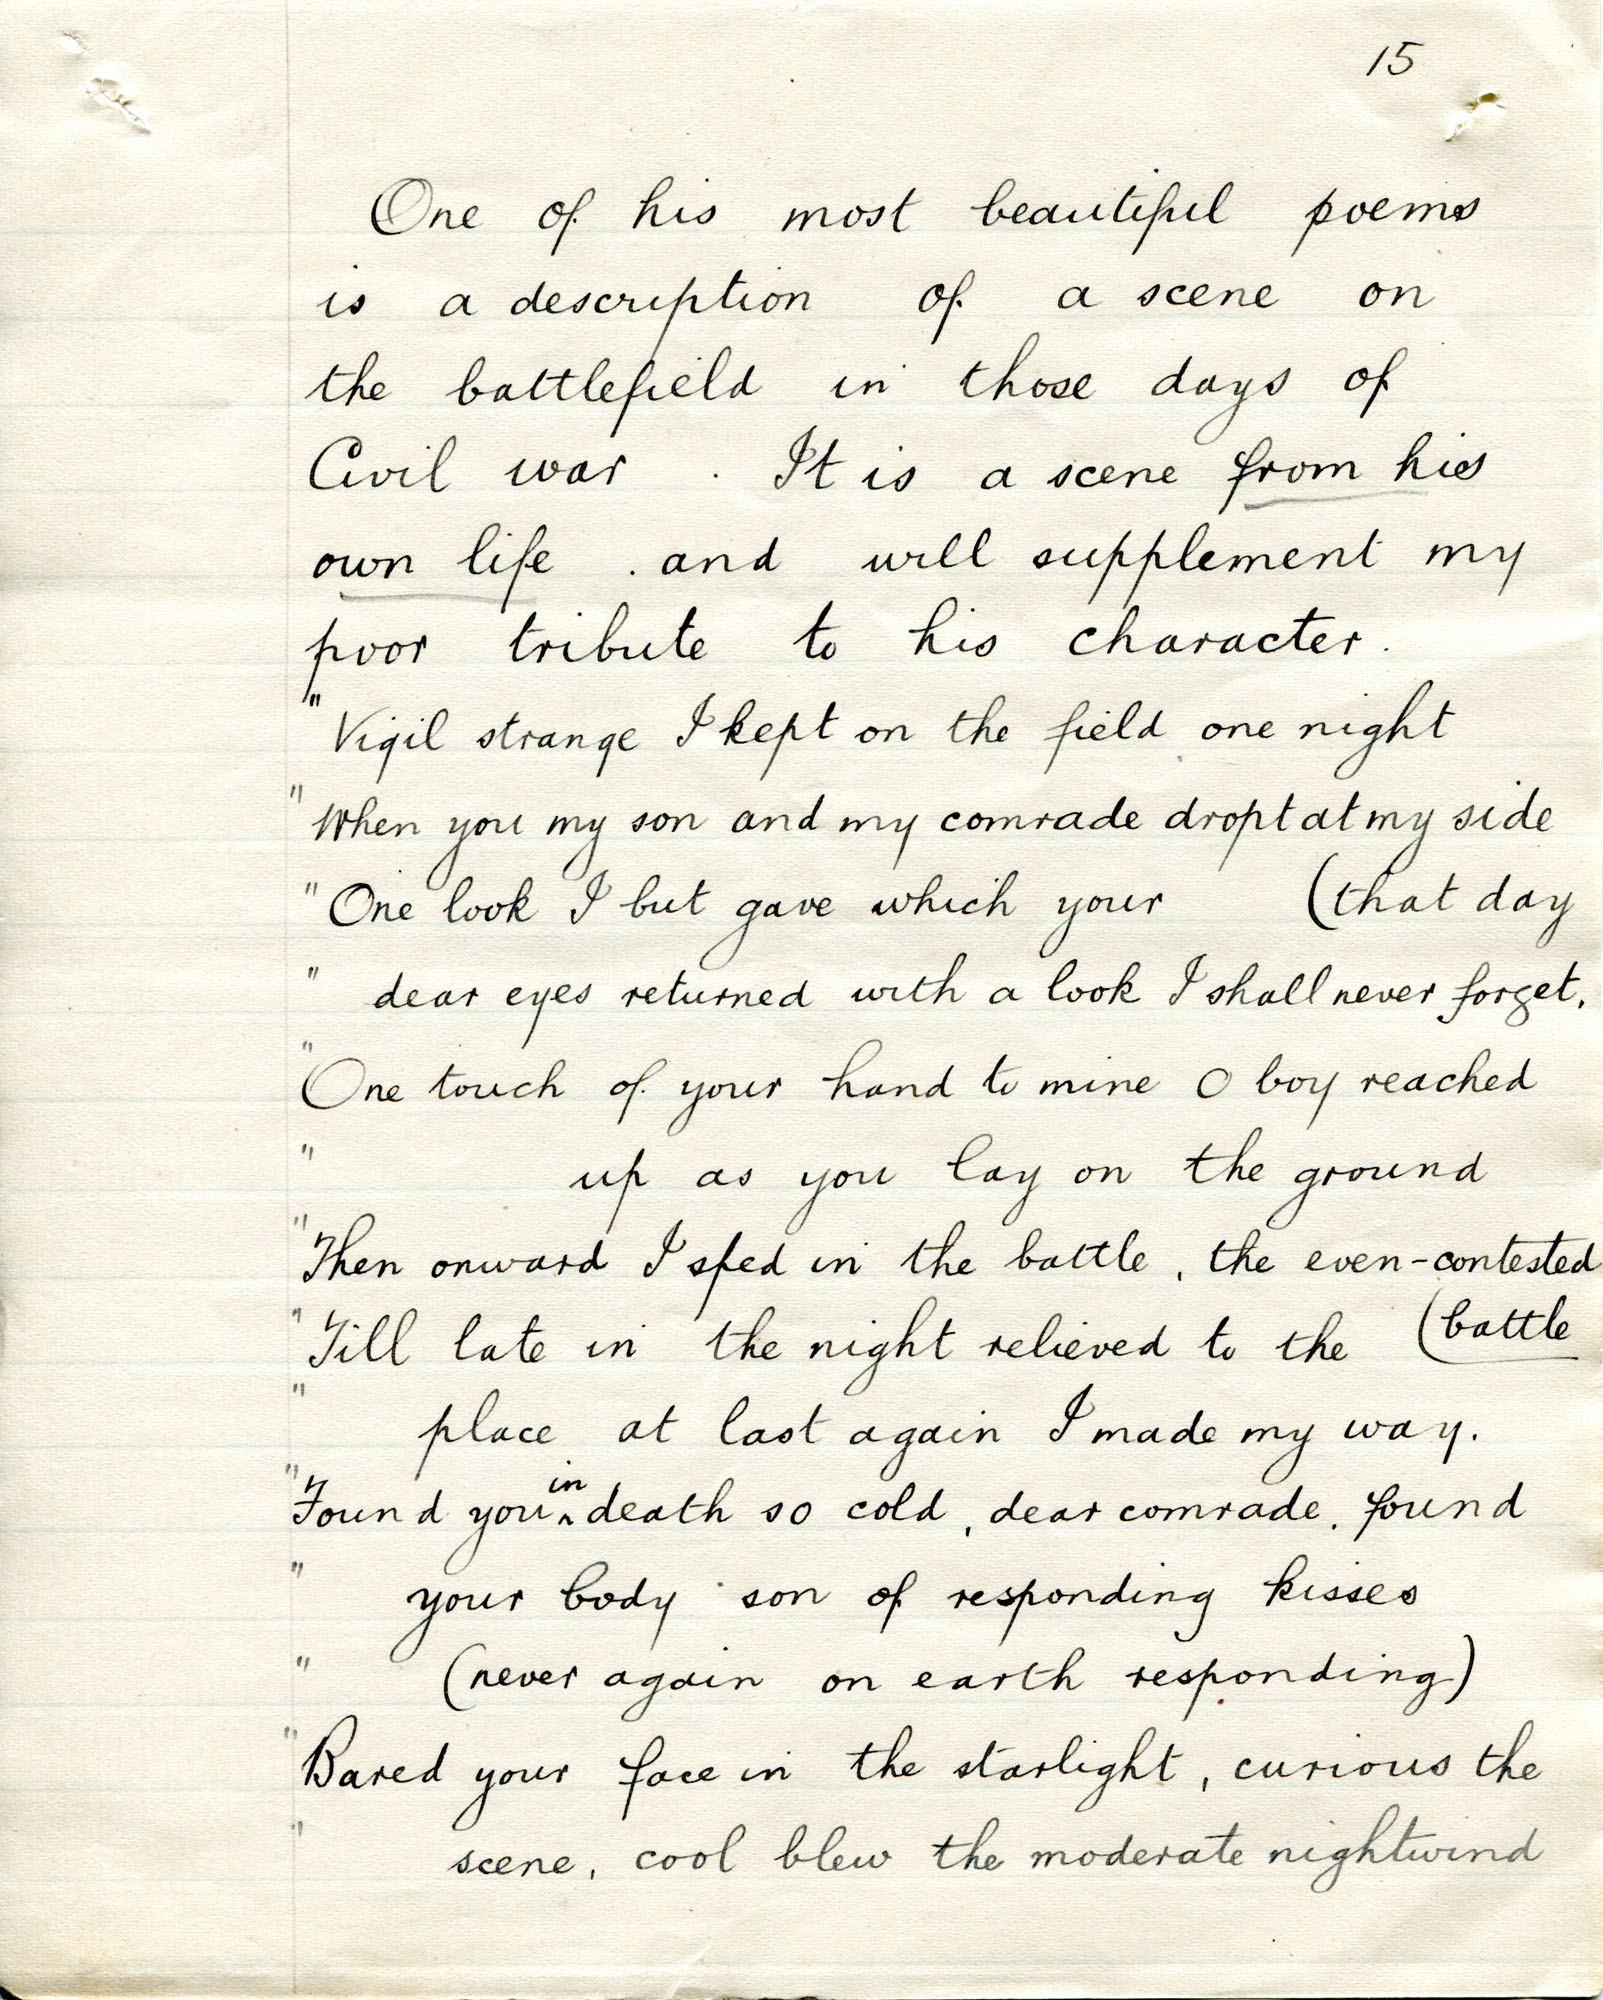 15
One of his most beautiful poems
is a description of a scene on
the battlefield in those days of
Civil war . It is a scene from his
own life . and will supplement my
poor tribute to his character .
" Vigil strange I kept on the field one night
" When you my son and my comrade dropt at my side
" One look I but gave which your (that day
" dear eyes returned with a look I shall never forget.
" One touch of your hand to mine O boy reached
" up as you lay on the ground
" Then onward I sped in the battle , the even-contested
" Till late in the night relieved to the (battle
" place at last again I made my way.
" Found you in death so cold , dear comrade . found
" your body son of responding kisses
" (never again on earth responding)
" Bared your face in the starlight , curious the
" scene , cool blew the moderate nightwind